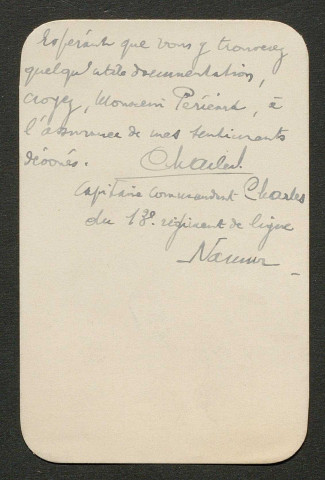 Espérant que vous y trouverez
quelqu'utile documentation,
croyez, Monsieur Périéard, à
l'assurance de mes sentiments
dévoués. Charles
Capitaine commandant Charles
du 13e régiment de ligne
Namur